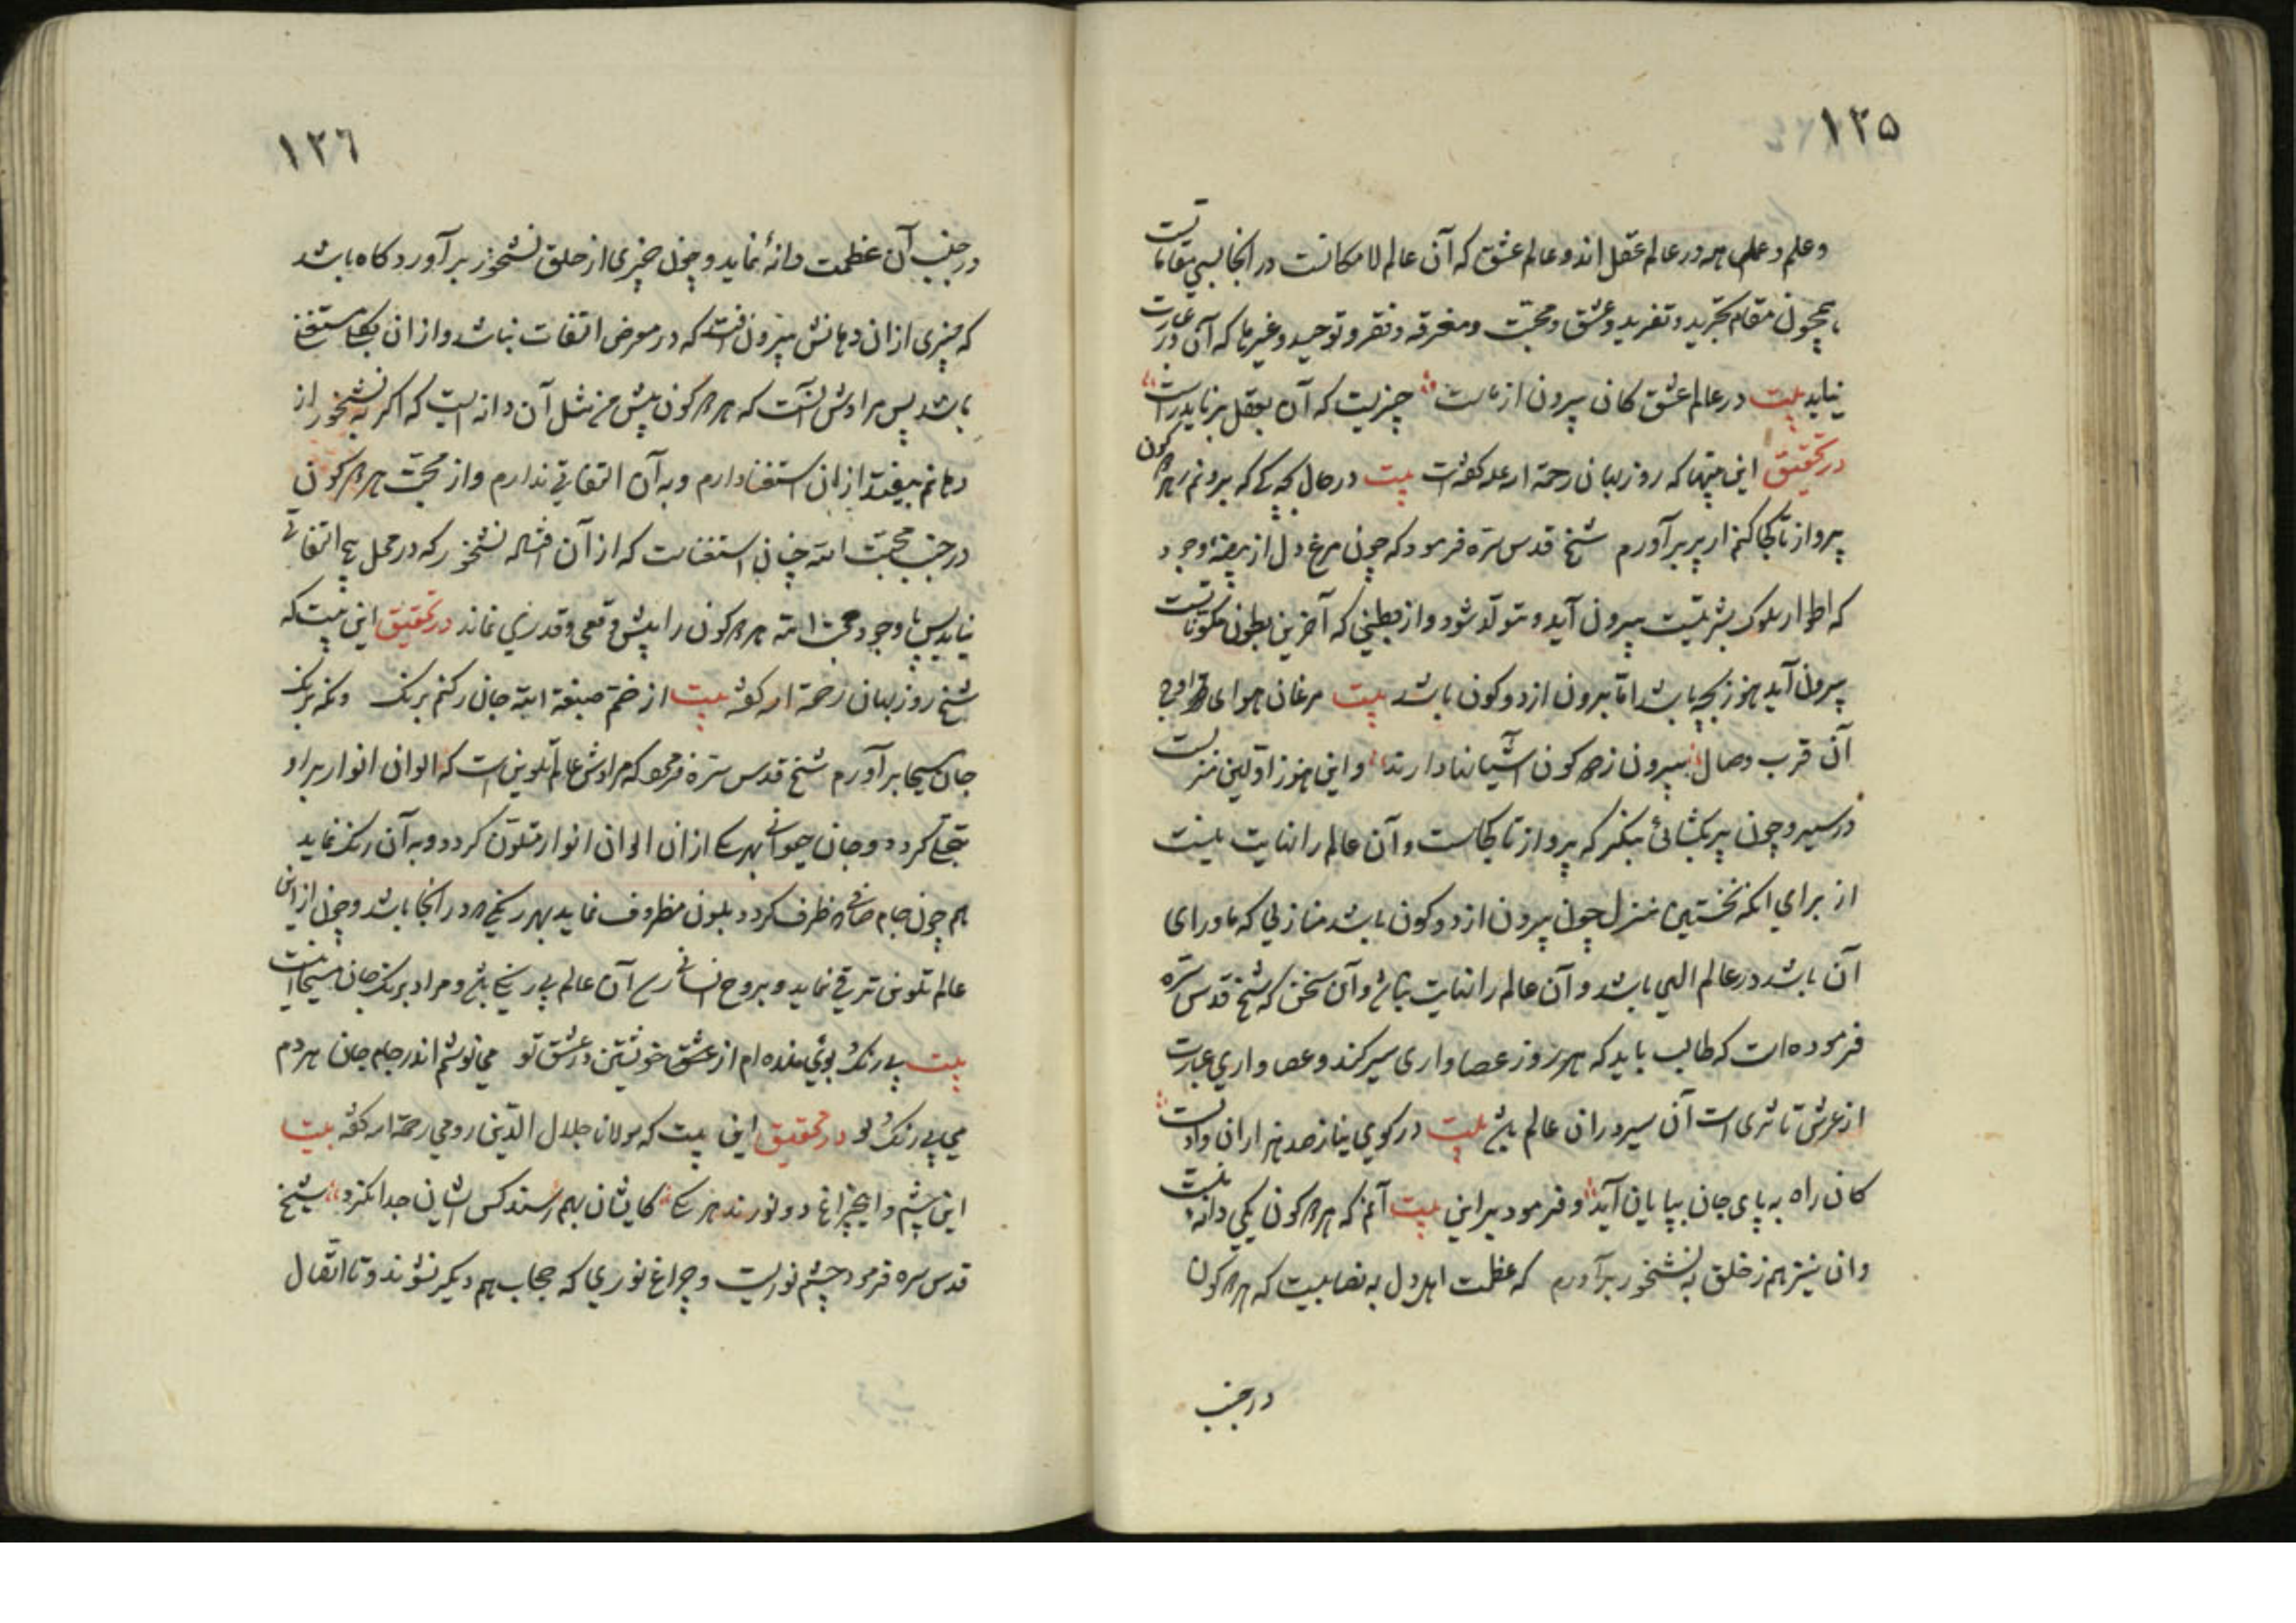 ١٢٥
وعلم و عملی همه در عالم عقل اند و عالم عشق که آن عالم لا مکانست در انجا بسی مقاماتست
همچون مقام تجرید و تفرید و عشق و محبّت و معرفة و فقر و توحید و غیرها که آن در عبارت
نیاید بیت در عالم عشق کان بیرون از ماست چیزیست که آن بعقل بر ناید راست
در تحقیق این بیتها که روزبهان رحمة الله علیه کفته است بیت در حال بچه کی که برونم ز هر دو کون
پرواز تا کجا کنم ار پر برآورم شیخ قدس سرّه فرمود که چون مرغ دل از بیضهٔ وجود
که اطوار سلوک بشریّست بیرون آید و متولّد شود و از بطنی که آخرین بطون مکوناتست
بیرون آید هنوز بچه باشد امّا بیرون از دو کون باشد بیت مرغان هوای اوج
آن قرب وصال بیرون ز دو کون آشیانها دارند و این هنوز اوّلین منزلست
در سیر و چون پر بکشائی بنکر که پرواز تا کجاست و آن عالم را نهایت نیست
از برای انکه نخستین منزل چون بیرون از دو کون باشد منازلی که ماورای
آن باشد در عالم الهی باشد و آن عالم را نهایت نباشد و آن سخن که شیخ قدس سرّه
فرموده است که طالب باید که هر روز عصاواری سیر کند و عصاواری عبارت
از عرش تا ثری است آن سیر در ان عالم باشد بیت در کوی نیاز صد هزاران وادیست
کان راه به پای جان بپایان آید و فرمود بر این بیت آنم که هر دو کون یکی دانه نیست
وان نیز هم ز خلق به نشخور برآورم که عظمت اهل دل به نصابیست که هر دو کون
در جنب
١٢٦
در جنب آن عظمت دانهٔ نماید و چون چیزی از حلق نشخور برآورد کاه باشد
که چیزی ازان دهانش بیرون افتد که در معرض التفات نباشد و ازان بکلی مستغنی
باشد پس مرادش آنست که هر دو کون پیش من مثل آن دانه ایست که اکر به نشخور از
دهانم بیفتد ازان استغنا دارم و به آن التفاتی ندارم و از محبّت هر دو کونی
در جنب محبّت الله چنان استغناست که از آن نشخور که در محل هیچ التفاتی
نیاید پس با وجود محبّت الله هر دو کون را پیش وقعی و قدری نماند در تحقیق این بیت که
شیخ روزبهان رحمة الله کفته بیت از خمّ صبغة الله جان رکنم برنک ونکه برنک
جان مسیحا برآورم شیخ قدس سرّه فرمود که مرادش عالم تلوین است که الوان انوار بر او
تجلّی کردد و جان حیوانی بهر یکی ازان الوان انوار متلوّن کردد و به آن رنک نماید
هم چون جام صافی ظرف کردد بلون مظروف نماید بهر رنکی در انجا باشد و چون از این
عالم تلوین ترقی نماید و بروح انسانی رسد آن عالم بی رنکی باشد و مراد برنک جان مسیحا اینست
بیت بی رنک و بوئی مانده ام از عشق خویشتن در عشق تو می نوشم اندر جام جان هر دم
می بی رنک و بو در تحقیق این بیت که مولانا جلال الدّین رومی رحمة الله کفته بیت
این چشم و این چراغ دو نورند هر یکی کایشان بهم رسند کس ایشان جدا نکرد شیخ
قدس سره فرمود چشم نوریست و چراغ نوری که حجاب هم دیکر نشوند و تا اتّصال